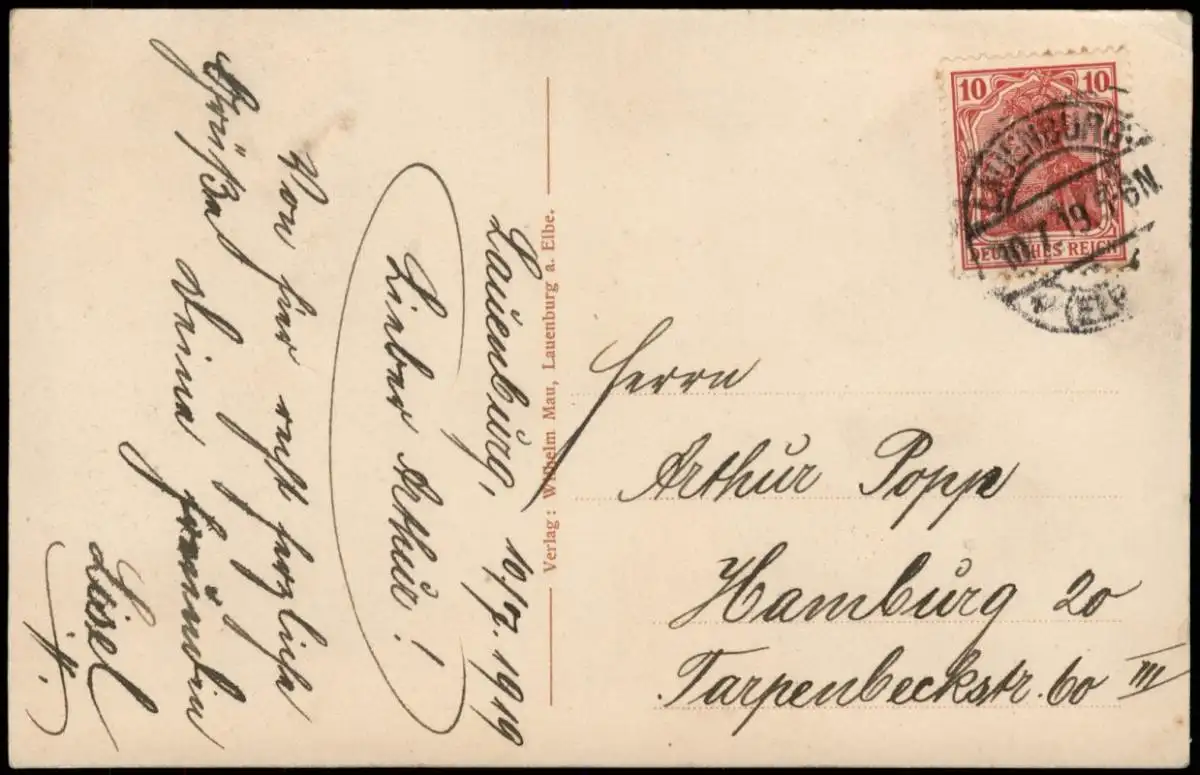 Lauenburg, 10/7. 1919
Lieber Arthur!
Von hier recht herzliche
Grüße Deine Freundin
Liesel
H.
Verlag: Wilhelm Mau, Lauenburg a. Elbe.
10 10
DEUTSCHES REICH
LAUENBURG
10.7.19. 5-6N.
(ELBE)
Herrn
Arthur Popp
Hamburg 20
Tarpenbeckstr. 60 III